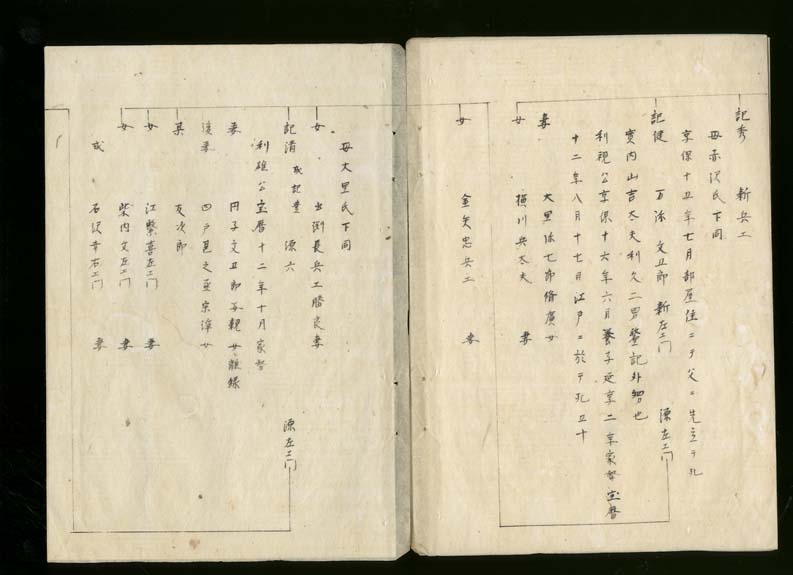 記秀 新兵エ
母赤沢氏下同
享保十五年七月部屋住ニテ父ニ先立テ死
記健 万弥 文五郎 新左エ門 源左エ門
実内山吉太夫利久二男 記外智也
利視公享保十六年六月養子延享二年家督宝暦
十二年八月十七日江戸ニ於テ死五十
妻 大里弥七郎脩廣女
女 横川兵太夫 妻
女 金矢忠兵エ 妻
母大里氏下同
女 出渕長兵エ勝良妻
記清 或記豊 源六 源左エ門
利雄公宝暦十二年十月家督
妻 円子文五郎 親女離縁
後妻 四戸甚之丞宗淳女
某 友次郎
女 江繋喜左エ門 妻
女 柴内文左エ門 妻
或 石沢幸右エ門 妻